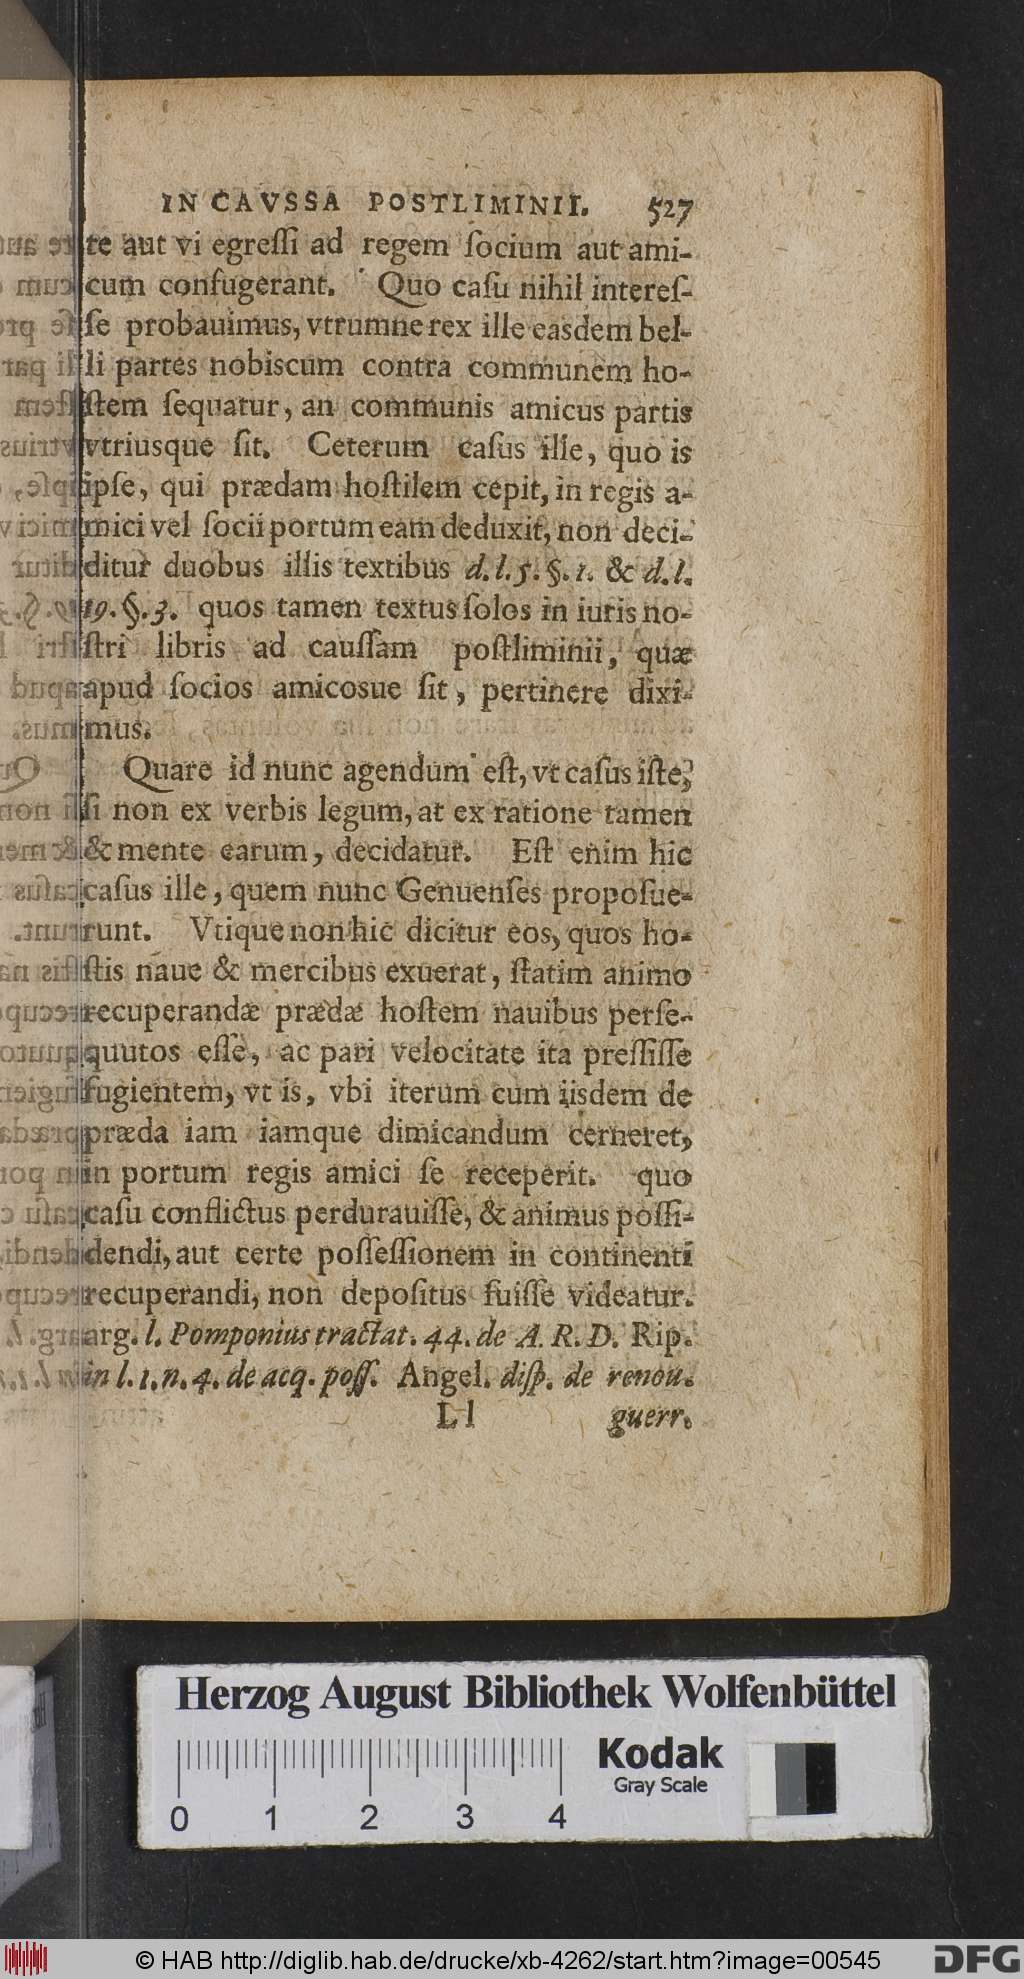 IN CAVSSA POSTLIMINII. 527
te aut vi egreſſi ad regem ſocium aut ami-
cum confugerant. Quo caſu nihil intereſ-
ſe probauimus, vtrumne rex ille easdem bel-
li partes nobiscum contra communem ho-
ſtem ſequatur, an communis amicus partis
vtriusque ſit. Ceterum caſus ille, quo is
ipſe, qui prædam hoſtilem cepit, in regis a-
mici vel ſocii portum eam deduxit, non deci-
ditur duobus illis textibus d. l. 5. §. 1. & d. l.
19. §. 3. quos tamen textus ſolos in iuris no-
ſtri libris ad cauſſam poſtliminii, quæ
apud ſocios amicosue ſit, pertinere dixi-
mus.
Quare id nunc agendum eſt, vt caſus iſte,
ſi non ex verbis legum, at ex ratione tamen
& mente earum, decidatur. Eſt enim hic
caſus ille, quem nunc Genuenſes propoſue-
runt. Vtique non hic dicitur eos, quos ho-
ſtis naue & mercibus exuerat, ſtatim animo
recuperandæ prædæ hoſtem nauibus perſe-
quutos eſſe, ac pari velocitate ita preſſiſſe
fugientem, vt is, vbi iterum cum iisdem de
præda iam iamque dimicandum cerneret,
in portum regis amici ſe receperit. quo
caſu conflictus perdurauiſſe, & animus poſſi-
dendi, aut certe poſſeſſionem in continenti
recuperandi, non depoſitus fuiſſe videatur.
arg. l. Pomponius tractat. 44. de A. R. D. Rip.
in l. 1. n. 4. de acq. poſſ. Angel. diſp. de renou.
Ll guerr.
Herzog August Bibliothek Wolfenbüttel
Kodak
Gray Scale
0 1 2 3 4
© HAB http://diglib.hab.de/drucke/xb-4262/start.htm?image=00545 DFG